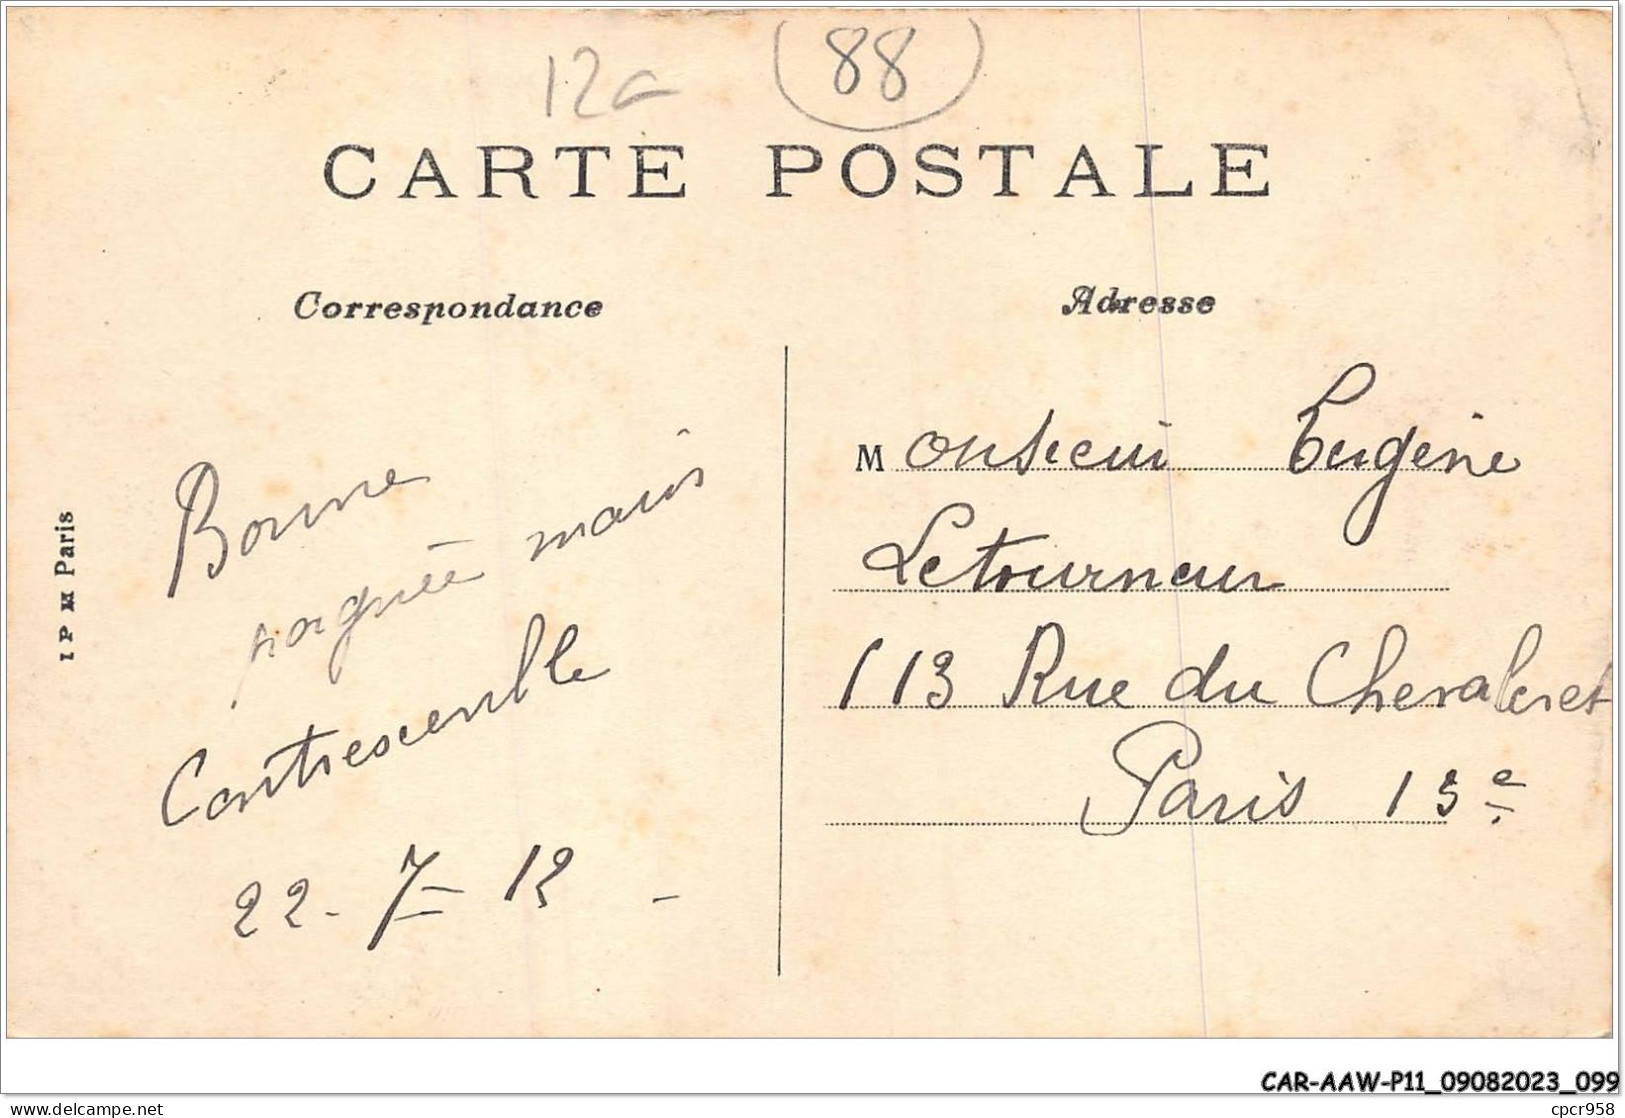 12a
88
CARTE POSTALE
Correspondance
Adresse
Bonne
poignée mains
Contrexeville
22-7-12
Monsieur Eugène
Letourneur
113 Rue du Chevaleret
Paris 13e
I P M Paris
CAR-AAW-P11_09082023_099
delcampe.net
cpcr958